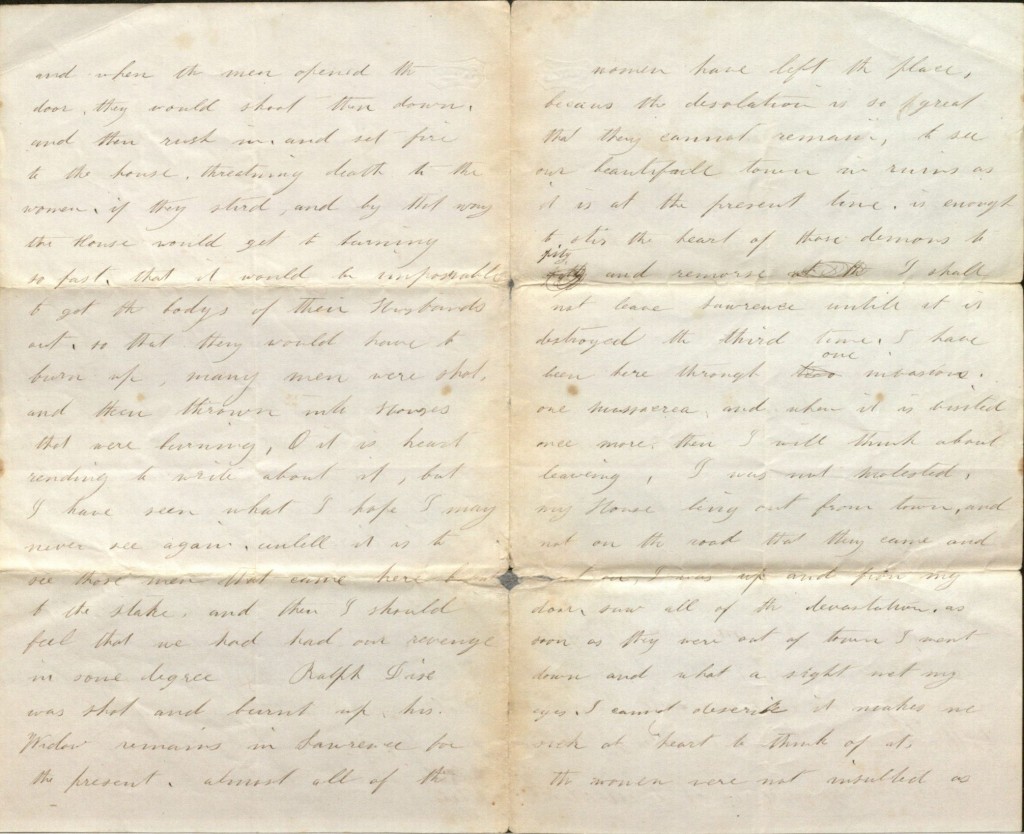 and when th men opened th
door, they would shoot then down,
and then rush in, and set fire
to the house, thretning death to the
women, if they stird, and by that way
the House would get to burning
so fast, that it would be impossable
to get th bodys of their Husbands
out, so that they would have to
burn up, many men were shot,
and then thrown into Houses
that were burning, O it is heart
rending to write about it, but
I have seen what I hope I may
never see again, untill it is to
see those men that came here
to the stake, and then I should
feel that we had had our revenge
in some degree Ralph Dise
was shot and burnt up his
Widow remains in Lawrence for
the present, almost all of the
women have left th place,
becaus the desolation is so great
that they cannot remain, to see
our beautifull town in ruins as
it is at the present time, is enough
to stir the heart of those demons to
pity and remorse I shall
not leave Lawrence untill it is
destroyed the third time, I have
been here through one invasion,
one massacrea, and when it is visited
once more, then I will think about
leaving, I was not molested,
my House being out from town, and
not on th road that they came and
I was up and from my
door, saw all of th devastation, as
soon as they were out of town I went
down and what a sight met my
eyes, I cannot describe it makes me
sick at heart to think of it,
th women were not insulted as